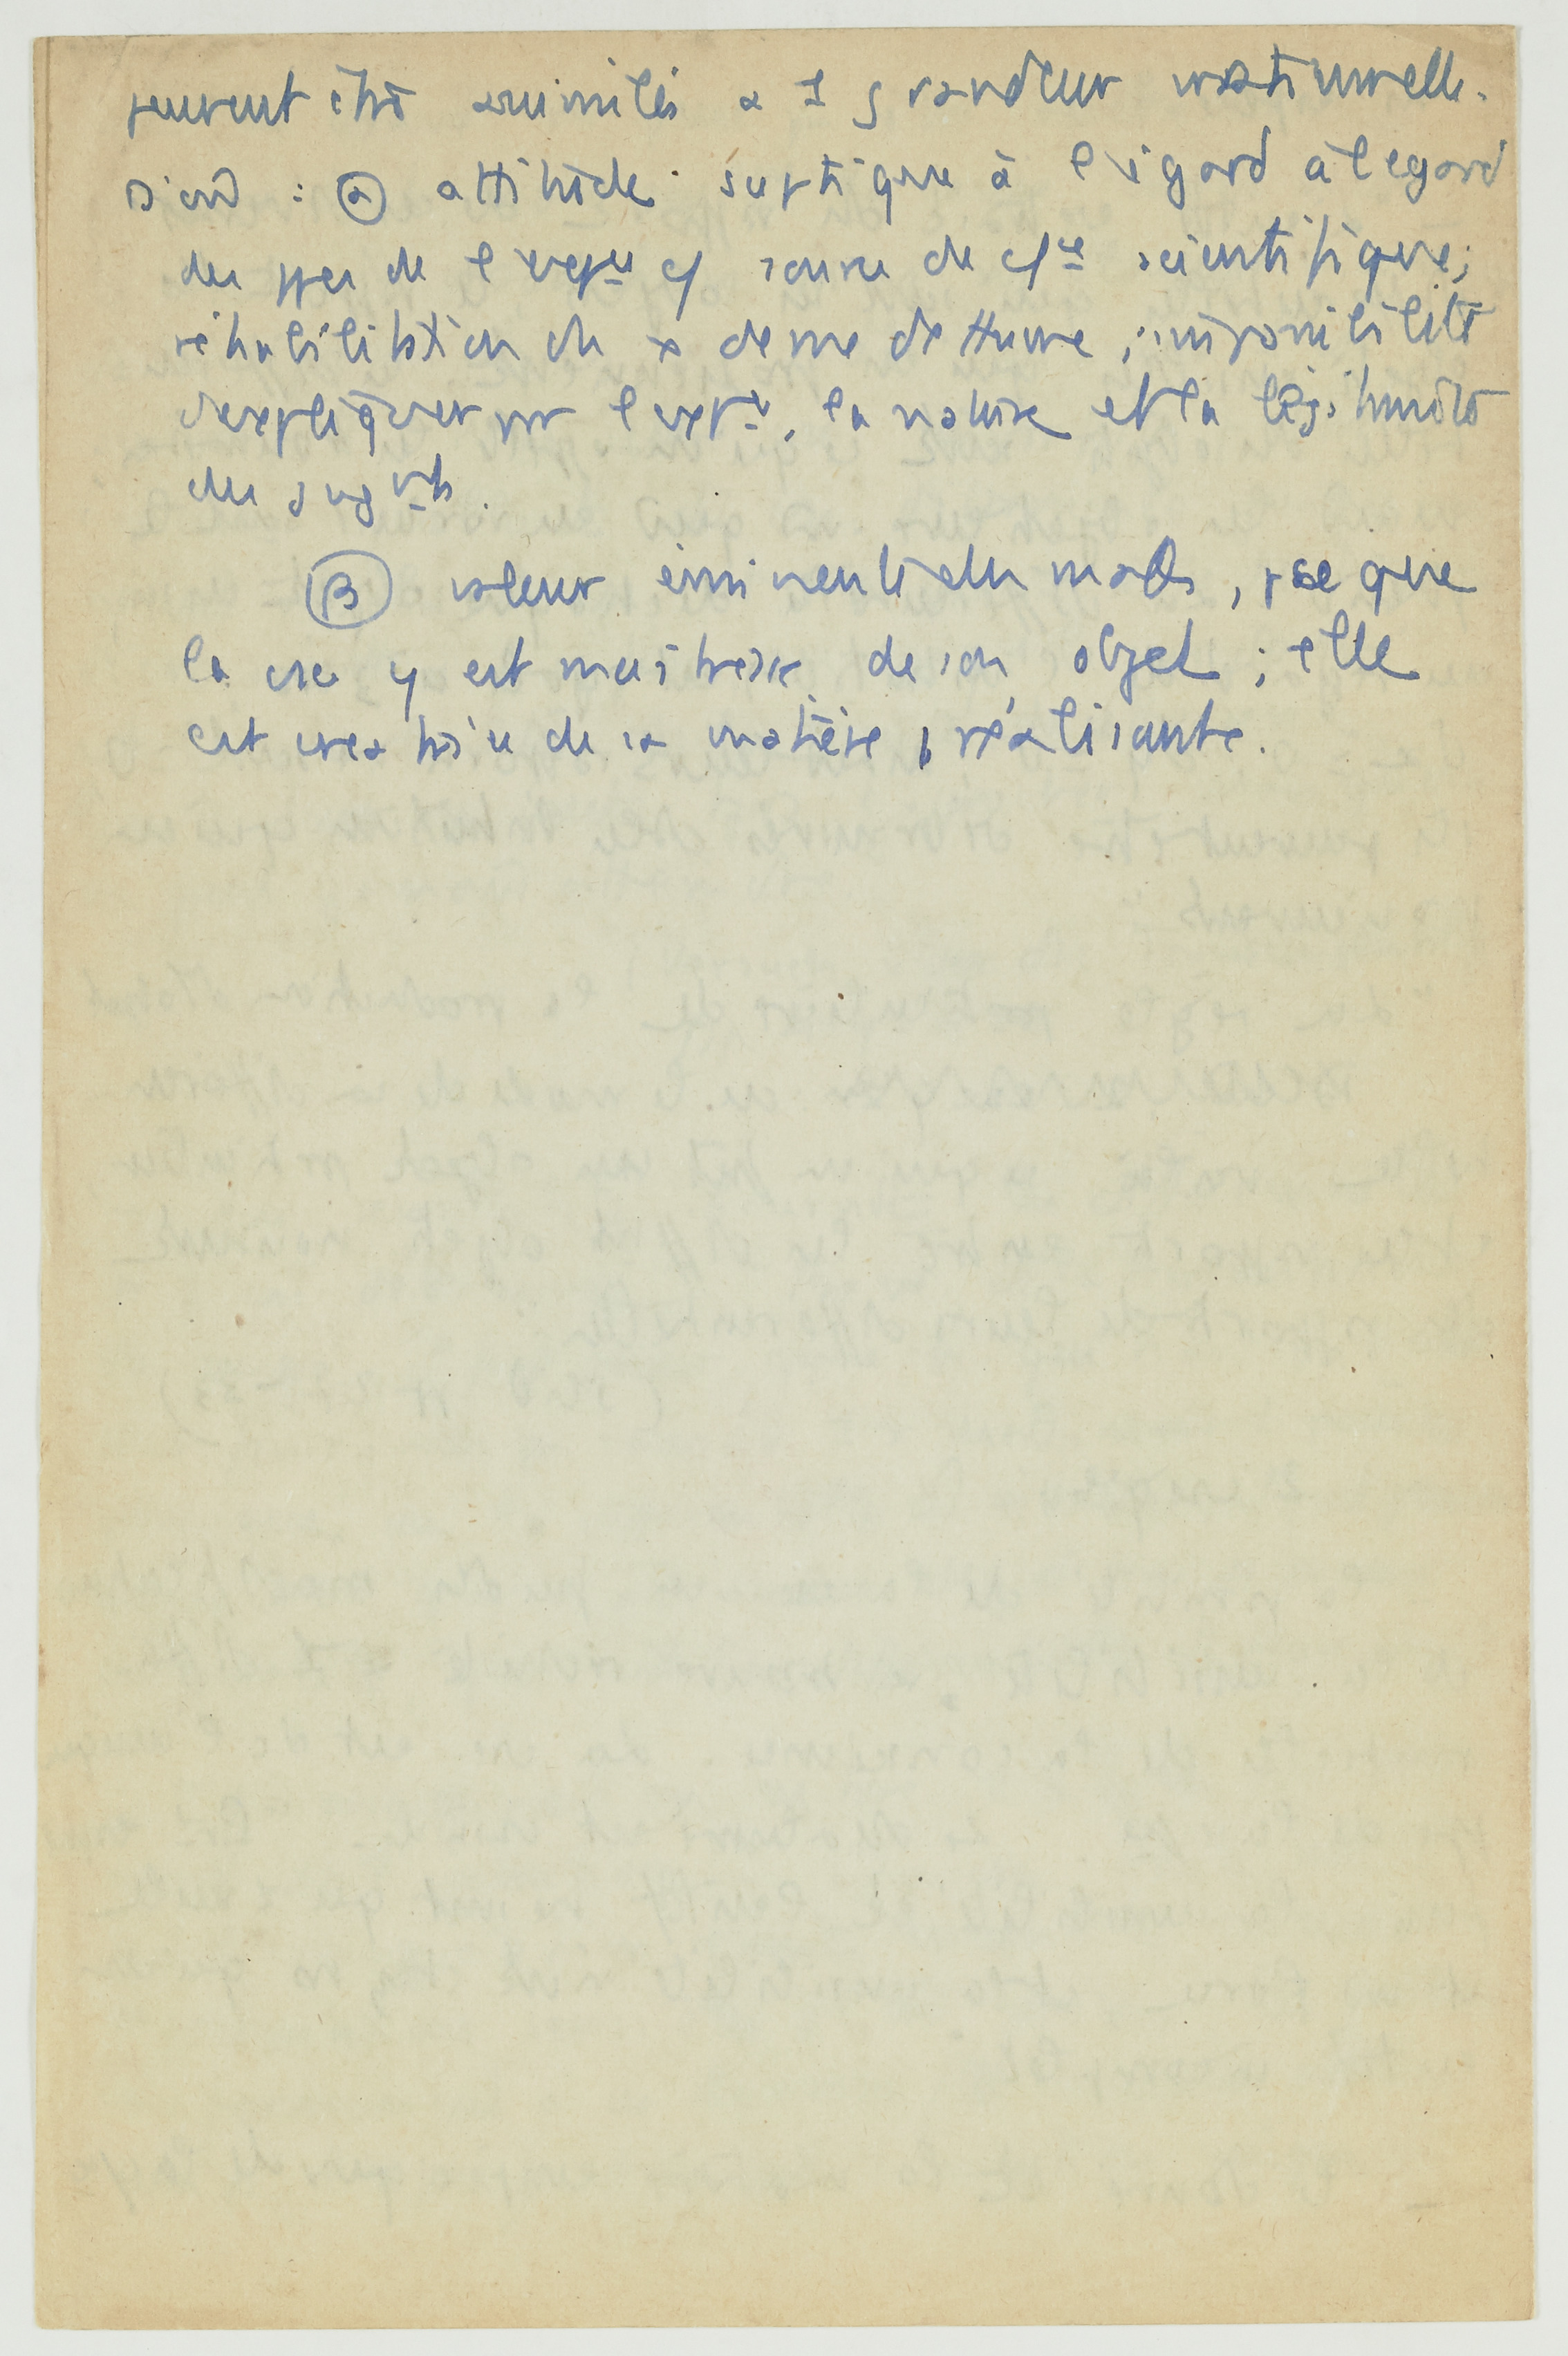 peuvent être assimilés a 1 grandeur irrationnelle.
D'où : α attitude sceptique à l'égard à l'egard
des pps de l'expce c/ source de c/ce scientifique ;
réhabilitation du de Hume ; impossibilité
d'expliquer pr l'expce, la nature et la légitimité
des jugmts.
β valeur éminente des maths, pse que
la csce y est maîtresse de son objet ; elle
est créatrice de sa matière, réalisante.